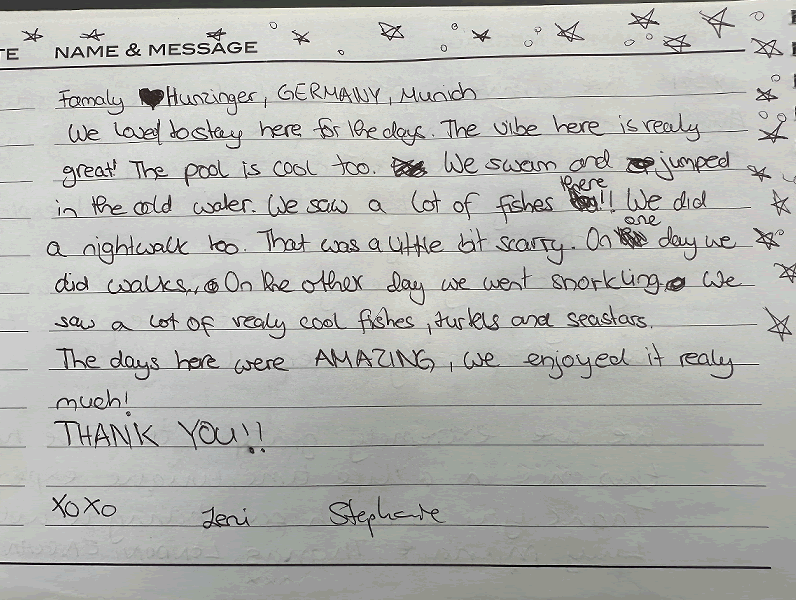 TE NAME & MESSAGE
Famaly Hunzinger, GERMANY, Munich
We loved to stay here for the days. The vibe here is realy
great! The pool is cool too. We swam and jumped
in the cold water. We saw a lot of fishes there!! We did
a nightwalk too. That was a little bit scarry. On one day we
did walks. On the other day we went snorkling. We
saw a lot of realy cool fishes, turtels and seastars.
The days here were AMAZING, we enjoyed it realy
much!
THANK YOU!!
XOXO Leni Stephanie